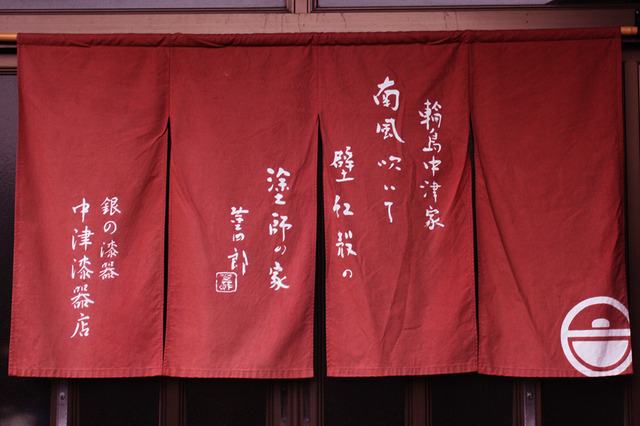 輪島中津家
南風吹いて
壁仁殺の
塗師の家
銀の漆器
中津漆器店